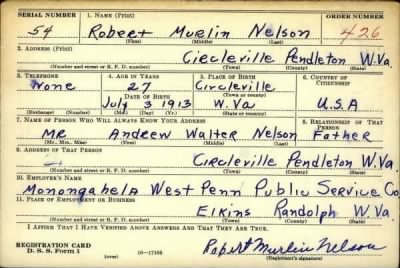 SERIAL NUMBER 1. NAME (Print) ORDER NUMBER
54 Robert Murlin Nelson 426
(First) (Middle) (Last)
2. ADDRESS (Print)
Circleville Pendleton W.Va.
(Number and street or R. F. D. number) (Town) (County) (State)
3. TELEPHONE 4. AGE IN YEARS 5. PLACE OF BIRTH 6. COUNTRY OF CITIZENSHIP
None 27 Circleville
DATE OF BIRTH (Town or county)
July 3 1913 W.Va U.S.A
(Exchange) (Number) (Mo.) (Day) (Yr.) (State or country)
7. NAME OF PERSON WHO WILL ALWAYS KNOW YOUR ADDRESS 8. RELATIONSHIP OF THAT PERSON
Mr Andrew Walter Nelson Father
(Mr., Mrs., Miss) (First) (Middle) (Last)
9. ADDRESS OF THAT PERSON
Circleville Pendleton W.Va.
(Number and street or R. F. D. number) (Town) (County) (State)
10. EMPLOYER'S NAME
Monongahela West Penn Public Service Co
11. PLACE OF EMPLOYMENT OR BUSINESS
Elkins Randolph W.Va.
(Number and street or R. F. D. number) (Town) (County) (State)
I AFFIRM THAT I HAVE VERIFIED ABOVE ANSWERS AND THAT THEY ARE TRUE.
REGISTRATION CARD
D. S. S. Form 1 (over) 16-17105 Robert Murlin Nelson
(Registrant's signature)